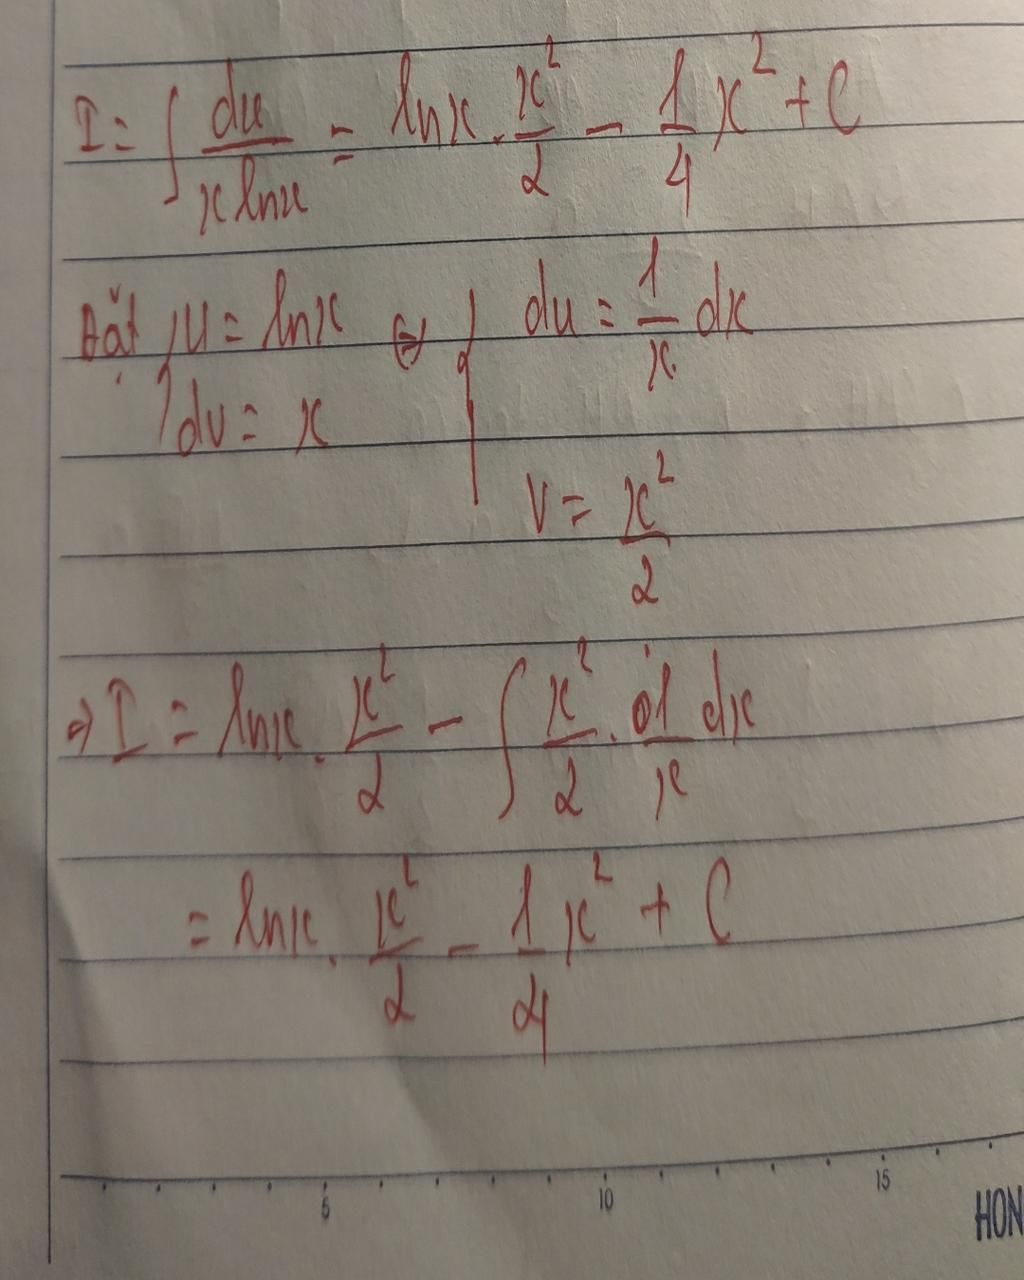 I = ∫ du/(x lnx) = lnx . x²/2 − 1/4 x² + C
Đặt { u = lnx ⇔ { du = 1/x dx
dv = x
v = x²/2
⇒ I = lnx . x²/2 − ∫ x²/2 . 1/x dx
= lnx . x²/2 − 1/4 x² + C
5 10 15
HON